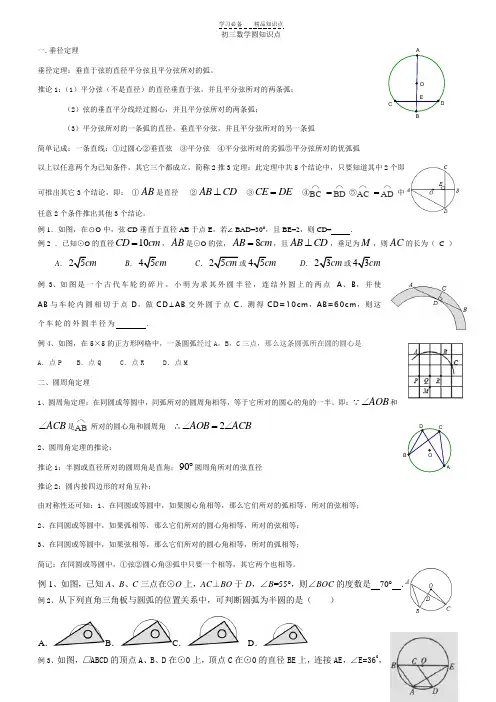 学习必备 精品知识点
初三数学圆知识点
一.垂径定理
垂径定理:垂直于弦的直径平分弦且平分弦所对的弧。
推论1:(1)平分弦(不是直径)的直径垂直于弦,并且平分弦所对的两条弧;
(2)弦的垂直平分线经过圆心,并且平分弦所对的两条弧;
(3)平分弦所对的一条弧的直径,垂直平分弦,并且平分弦所对的另一条弧
简单记成:一条直线:①过圆心②垂直弦 ③平分弦 ④平分弦所对的劣弧⑤平分弦所对的优弧弧
以上以任意两个为已知条件,其它三个都成立,简称2推3定理:此定理中共5个结论中,只要知道其中2个即
可推出其它3个结论,即: ①AB是直径 ②AB⊥CD ③CE=DE ④BC=BD ⑤AC=AD 中
任意2个条件推出其他3个结论。
例1.如图,在⊙O中,弦CD垂直于直径AB于点E,若∠BAD=30°,且BE=2,则CD= .
例2 .已知⊙O的直径CD=10cm,AB是⊙O的弦,AB=8cm,且AB⊥CD,垂足为M,则AC的长为( C )
A. 2√5cm B. 4√5cm C. 2√5cm或4√5cm D. 2√3cm或4√3cm
例3.如图是一个古代车轮的碎片,小明为求其外圆半径,连结外圆上的两点A、B,并使
AB与车轮内圆相切于点D,做CD⊥AB交外圆于点C.测得CD=10cm,AB=60cm,则这
个车轮的外圆半径为 .
例4.如图,在5×5的正方形网格中,一条圆弧经过A,B,C三点,那么这条圆弧所在圆的圆心是
A.点P B.点Q C.点R D.点M
二、圆周角定理
1、圆周角定理:在同圆或等圆中,同弧所对的圆周角相等,等于它所对的圆心的角的一半。即:∵∠AOB和
∠ACB是AB 所对的圆心角和圆周角 ∴∠AOB=2∠ACB
2、圆周角定理的推论:
推论1:半圆或直径所对的圆周角是直角;90°圆周角所对的弦直径
推论2:圆内接四边形的对角互补;
由对称性还可知:1、在同圆或等圆中,如果圆心角相等,那么它们所对的弧相等,所对的弦相等;
2、在同圆或等圆中,如果弧相等,那么它们所对的圆心角相等,所对的弦相等;
3、在同圆或等圆中,如果弦相等,那么它们所对的圆心角相等,所对的弧相等;
简记:在同圆或等圆中,①弦②圆心角③弧中只要一个相等,其它两个也相等。
例1、如图,已知A、B、C三点在⊙O上,AC⊥BO于D,∠B=55°,则∠BOC的度数是 70° .
例2、从下列直角三角板与圆弧的位置关系中,可判断圆弧为半圆的是( )
A. B. C. D.
例3、如图,□ABCD的顶点A、B、D在⊙O上,顶点C在⊙O的直径BE上,连接AE,∠E=36°,